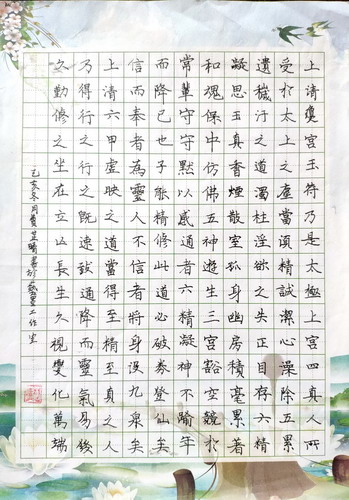 上清瓊宮玉符乃是太極上宮四真人所
受於太上之塵當須精誠潔心澡除五累
遺穢汙之道濁杜淫欲之失正目存六精
凝思玉真香煙散室孤身幽房積毫累著
和魂保中仿佛五神遊生三宮豁空競於
常輩守守默以感通者六精凝神不踰年
而降已也子能精修此道必破券登仙矣
信而奉者為靈人不信者將身沒九泉矣
上清六甲虛映之道當得至精至真之人
乃得行之行之既速致通降而靈氣易發
久勤修之坐在立亡長生久視變化萬端
己亥冬月黃芷晴書於藝墨工作室